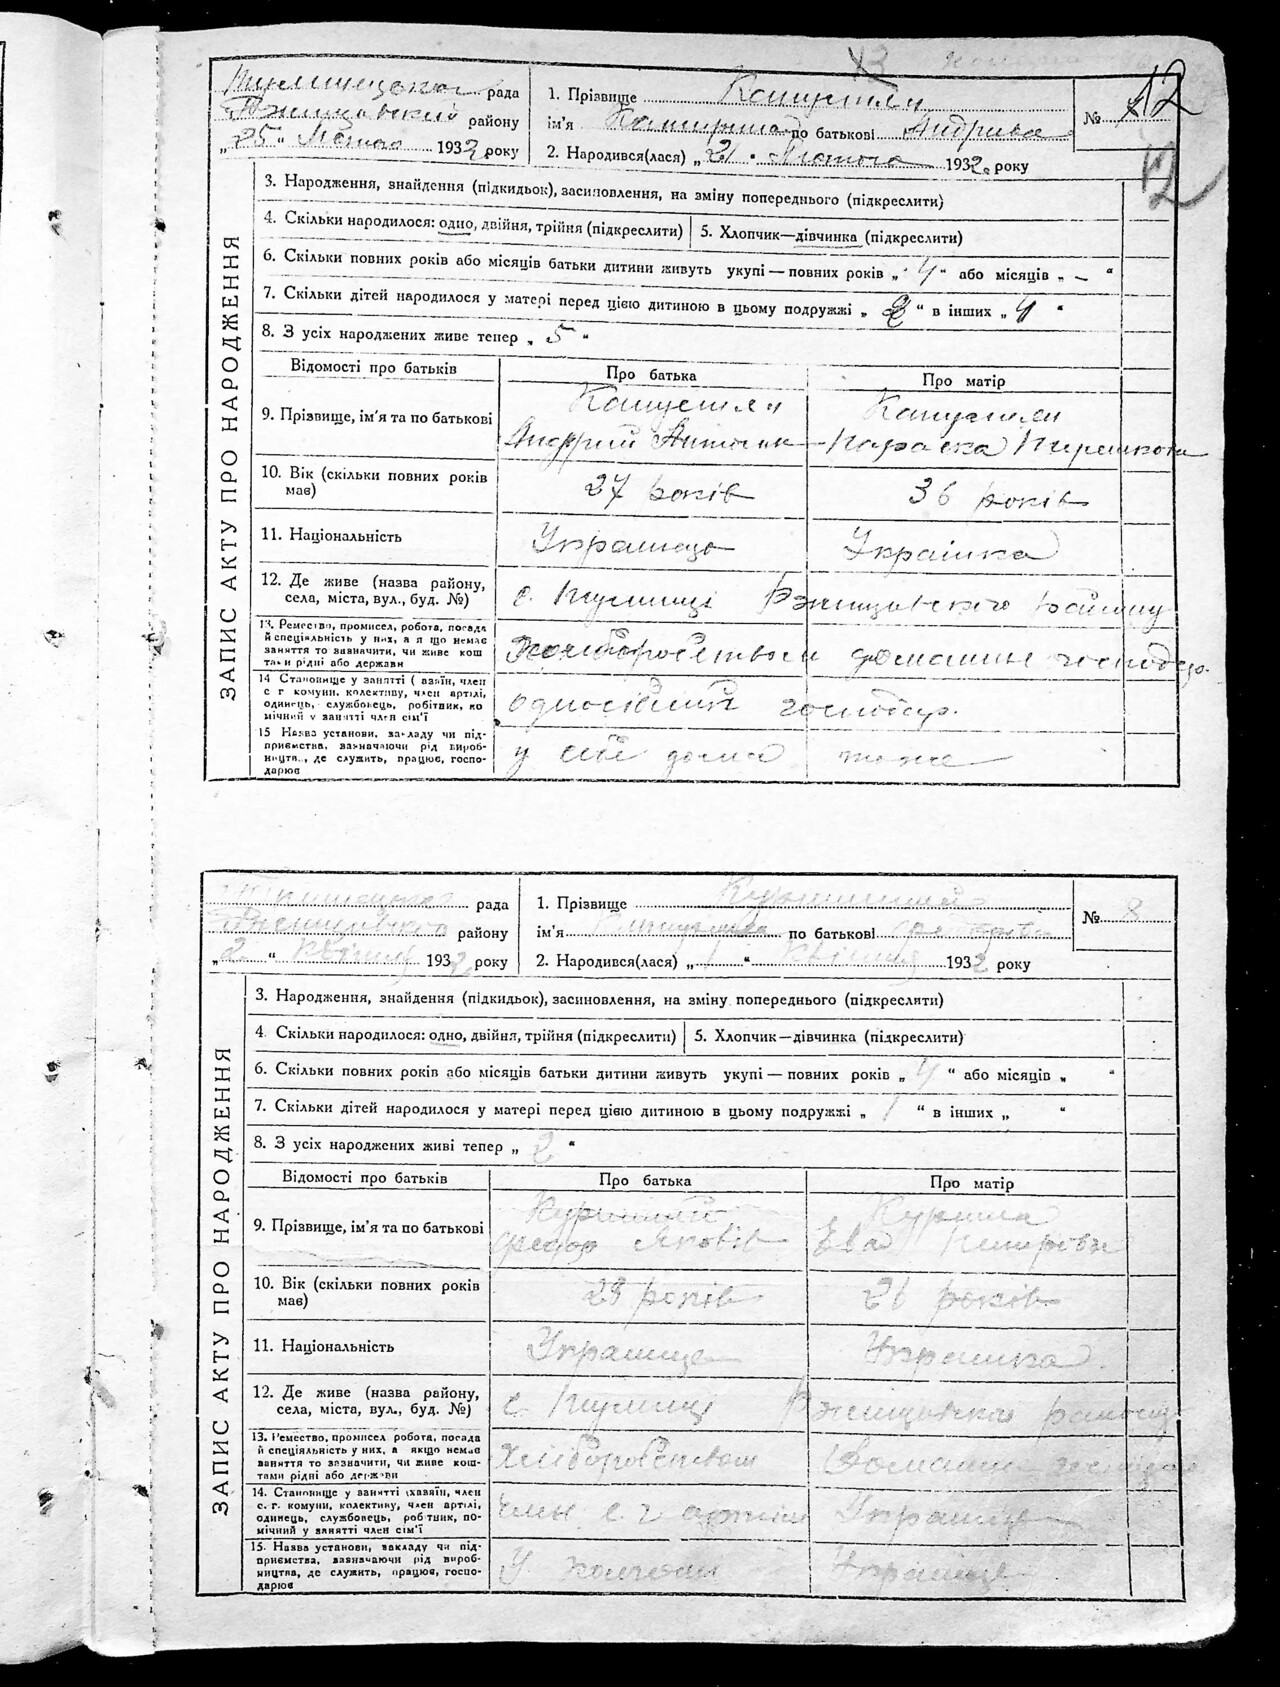 43
рада
району
„ 25 “ Лютого 1932 року
1. Прізвище
ім'я по батькові Андріївна
2. Народився(лася) „ 21 “ Лютого 1932 року
№ 12
12
ЗАПИС АКТУ ПРО НАРОДЖЕННЯ
3. Народження, знайдення (підкидьок), засиновлення, на зміну попереднього (підкреслити)
4. Скільки народилося: одно, двійня, трійня (підкреслити)
5. Хлопчик—дівчинка (підкреслити)
6. Скільки повних років або місяців батьки дитини живуть укупі — повних років „ 4 “ або місяців „ – “
7. Скільки дітей народилося у матері перед цією дитиною в цьому подружжі „ “ в інших „ 4 “
8. З усіх народжених живе тепер „ 5 “
Відомості про батьків
Про батька
Про матір
9. Прізвище, ім'я та по батькові
Андрій
Параска
10. Вік (скільки повних років має)
27 років
36 років
11. Національність
Українець
Українка
12. Де живе (назва району, села, міста, вул., буд. №)
с. Ржищівського району
13. Ремество, промисел, робота, посада й спеціяльність у них, а якщо немає заняття то визначити, чи живе коштами рідні або держави
Хліборобством
домашнє господар.
14 Становище у занятті (хазяїн, член с г комуни, колективу, член артілі, одинець, службовець, робітник, помічний у занятті член сім'ї
одноосібний господар.
15 Назва установи, закладу чи підприємства, зазначаючи рід виробництва, де служить, працює, господарює
у себе дома
теж
рада
району
„ 2 “ Квітня 1932 року
1. Прізвище
ім'я по батькові
2. Народився(лася) „ “ Квітня 1932 року
№ 8
ЗАПИС АКТУ ПРО НАРОДЖЕННЯ
3. Народження, знайдення (підкидьок), засиновлення, на зміну попереднього (підкреслити)
4. Скільки народилося: одно, двійня, трійня (підкреслити)
5. Хлопчик—дівчинка (підкреслити)
6. Скільки повних років або місяців батьки дитини живуть укупі — повних років „ 4 “ або місяців „ “
7. Скільки дітей народилося у матері перед цією дитиною в цьому подружжі „ 1 “ в інших „ “
8. З усіх народжених живі тепер „ 2 “
Відомості про батьків
Про батька
Про матір
9. Прізвище, ім'я та по батькові
Федор Яковів
Ева
10. Вік (скільки повних років має)
років
26 років
11. Національність
Українець
Українка
12. Де живе (назва району, села, міста, вул., буд. №)
с. Ржищівського району
13. Ремество, промисел робота, посада й спеціяльність у них, а якщо немає заняття то зазначити, чи живе коштами рідні або держави
Хліборобством
14. Становище у занятті (хазяїн, член с. г. комуни, колективу, член артілі, одинець, службовець, робітник, помічний у занятті член сім'ї
член с. г артілі
15. Назва установи, закладу чи підприємства, зазначаючи рід виробництва, де служить, працює, господарює
У